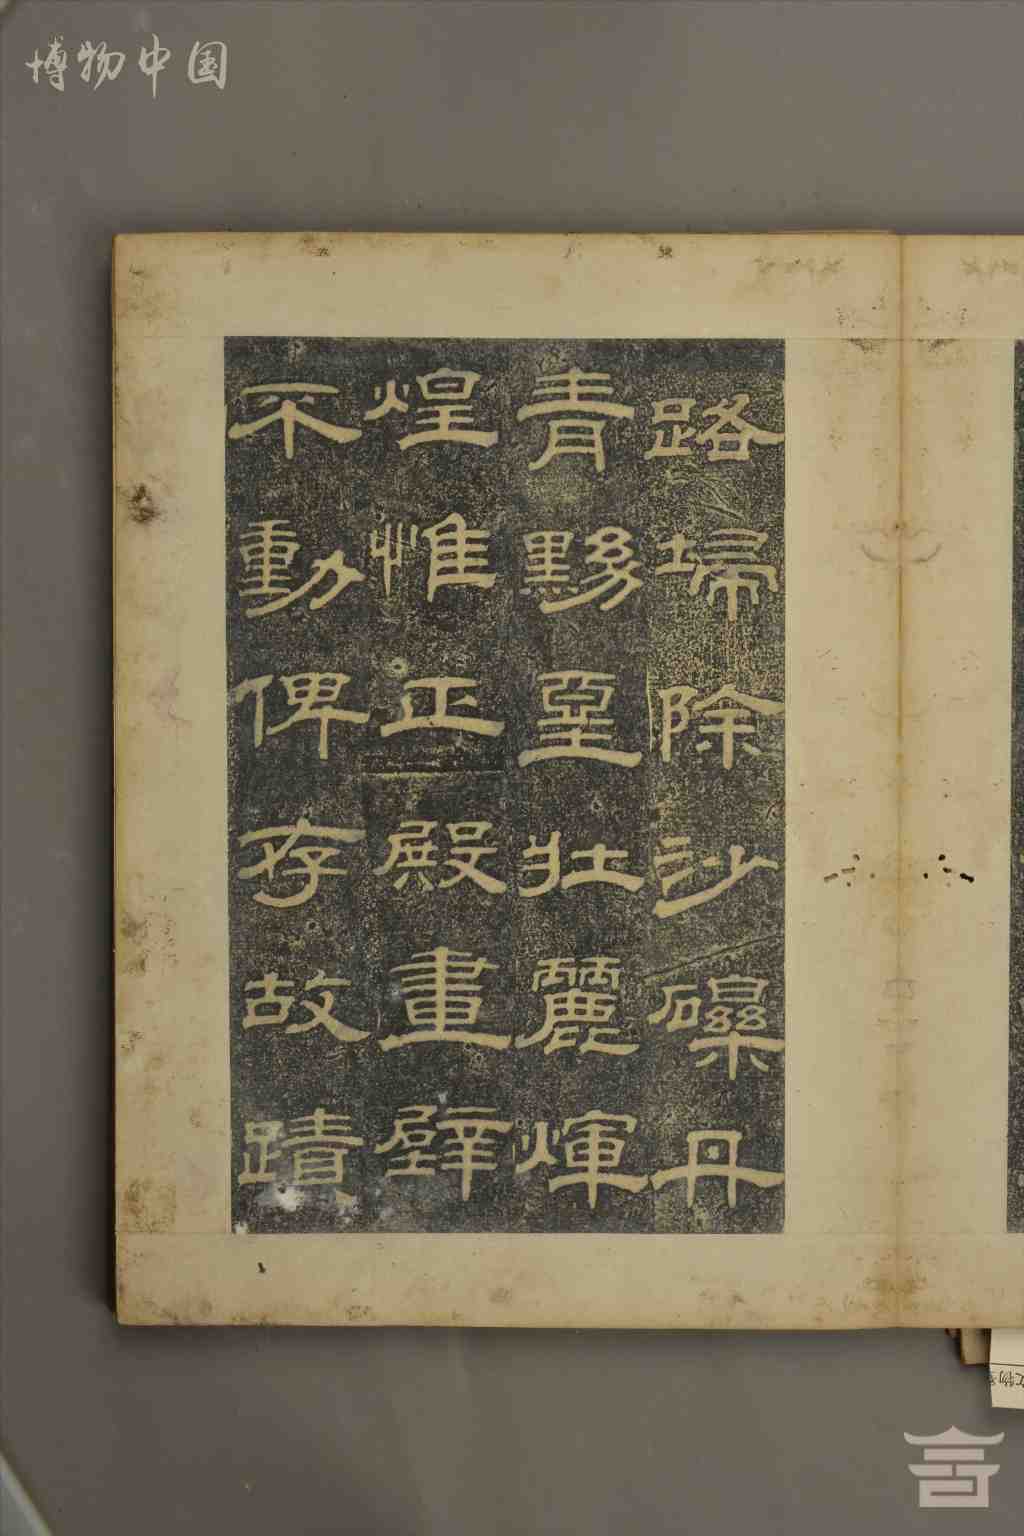 博物中国
路埽除沙礫丹
青黝堊壯麗煇
煌惟正殿畫壁
不動俾存故蹟
文物